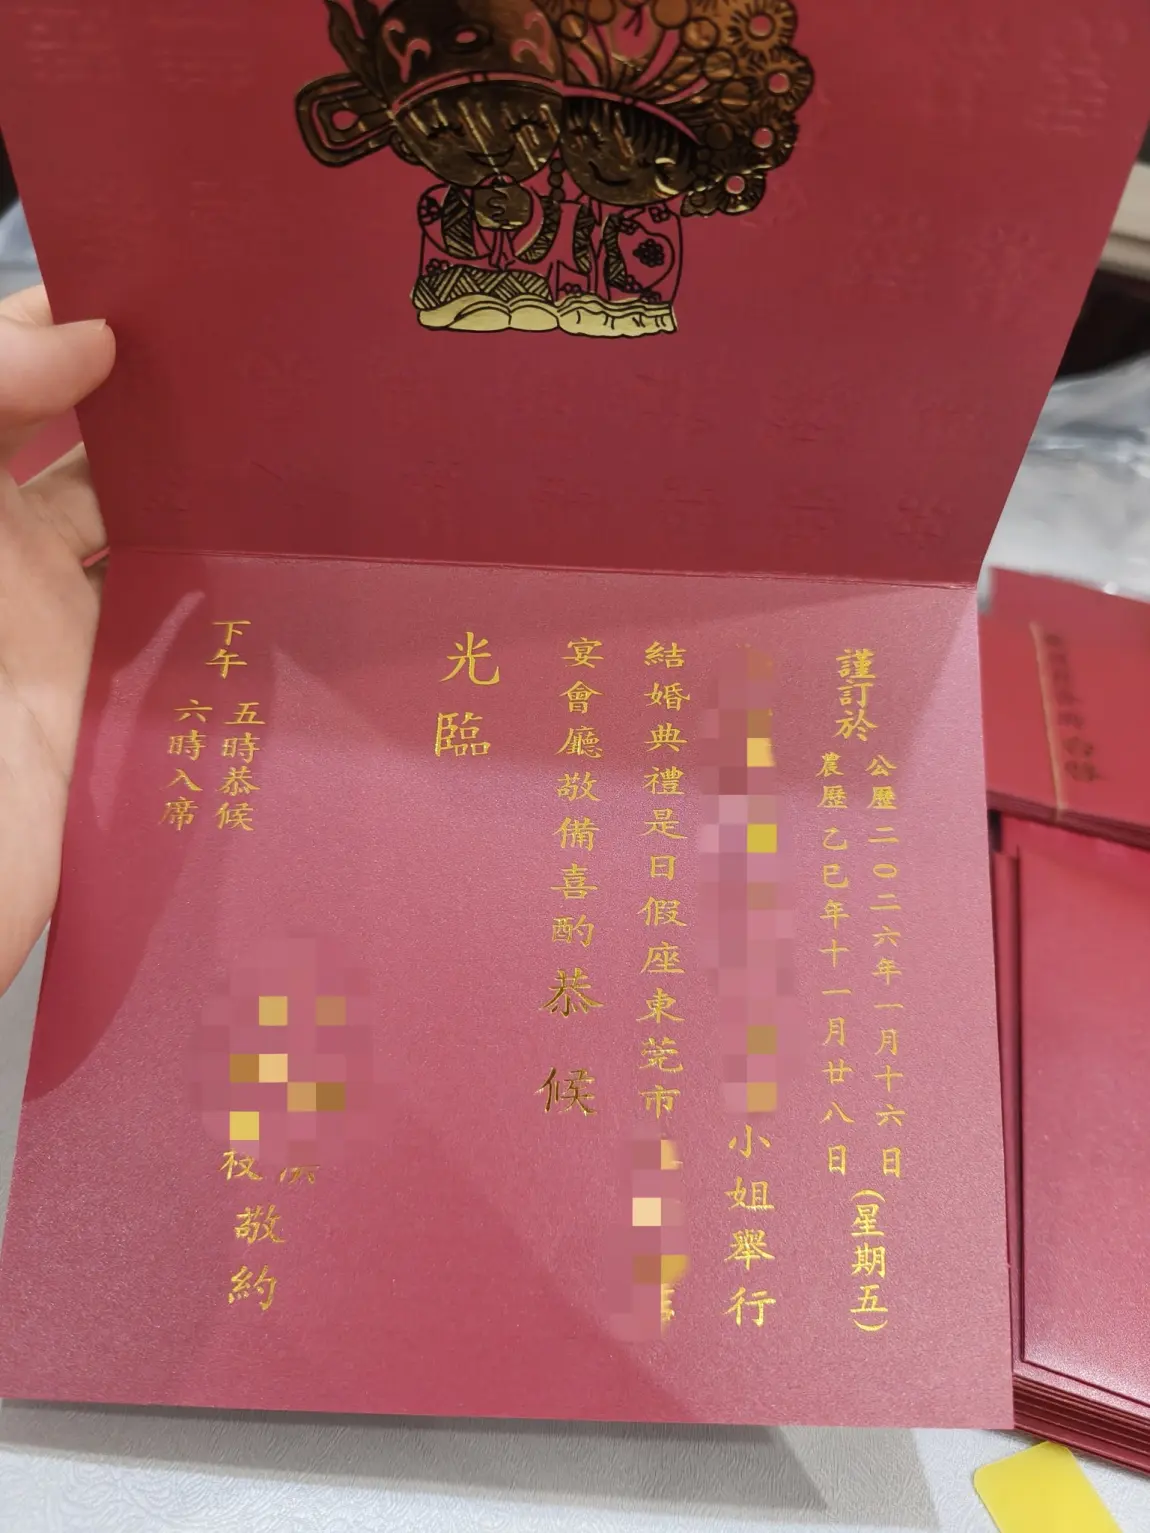 謹訂於
公歷二〇二六年一月十六日
農歷乙巳年十一月廿八日
(星期五)
小姐舉行
結婚典禮是日假座東莞市
宴會廳敬備喜酌恭候
光臨
敬約
下午
五時恭候
六時入席